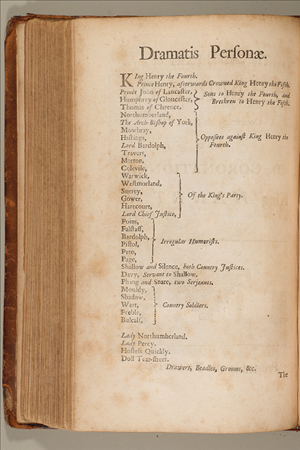 Dramatis Personæ.
King Henry the Fourth.
Prince Henry, afterwards Crowned King Henry the Fifth.
Prince John of Lancaster,
Humphrey of Gloucester,
Thomas of Clarence,
Sons to Henry the Fourth, and
Brethren to Henry the Fifth.
Northumberland,
The Arch Bishop of York,
Mowbray,
Hastings,
Lord Bardolph,
Travers,
Morton,
Colevile,
Opposites against King Henry the
Fourth.
Warwick,
Westmorland,
Surrey,
Gower,
Harecourt,
Lord Chief Justice,
Of the King's Party.
Poins,
Falstaff,
Bardolph,
Pistol,
Peto,
Page,
Irregular Humorists.
Shallow and Silence, both Country Justices.
Davy, Servant to Shallow.
Phang and Snare, two Serjeants.
Mouldy,
Shadow,
Wart,
Feeble,
Bulcalf,
Country Soldiers.
Lady Northumberland.
Lady Percy.
Hostess Quickly.
Doll Tear-sheet.
Drawers, Beadles, Grooms, &c.
The